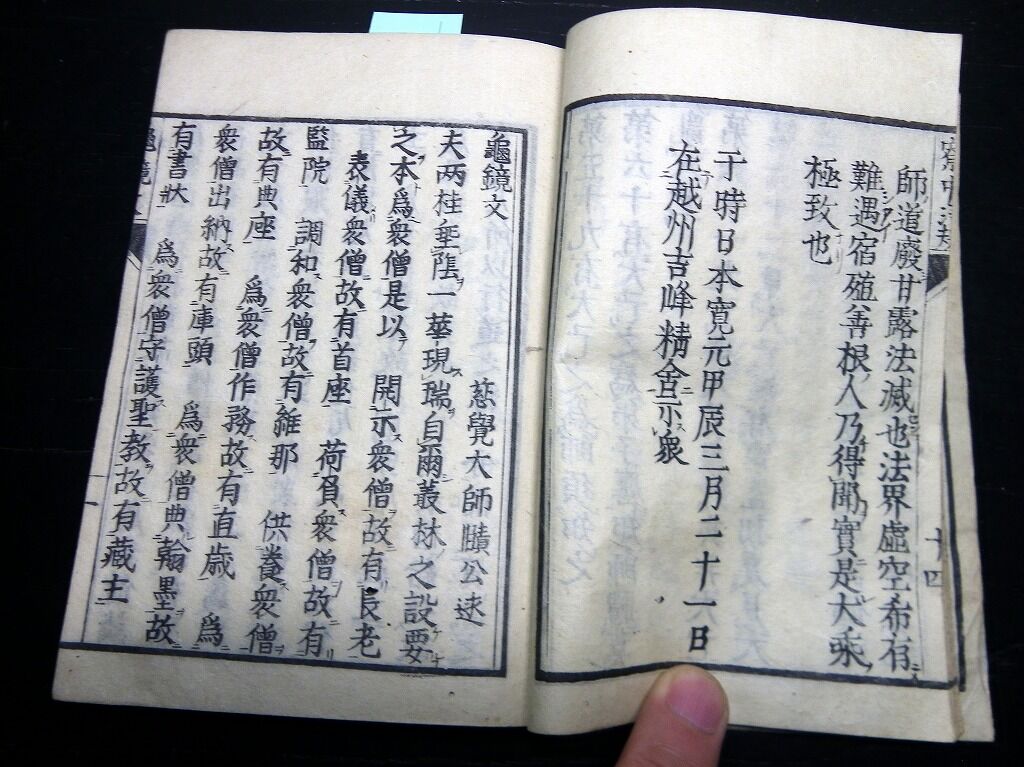 師道廢甘露法滅也法界虛空希有
難遇宿殖善根人乃得聞實是大乘
極致也
于時日本寬元甲辰三月二十一日
在越州吉峰精舍示衆
十四
龜鏡文
慈覺大師賾公述
夫兩桂垂蔭一華現瑞自爾叢林之設要
之本爲衆僧是以 開示衆僧故有長老
表儀衆僧故有首座 荷負衆僧故有
監院 調和衆僧故有維那 供養衆僧
故有典座 爲衆僧作務故有直歲 爲
衆僧出納故有庫頭 爲衆僧典翰墨故
有書狀 爲衆僧守護聖教故有藏主